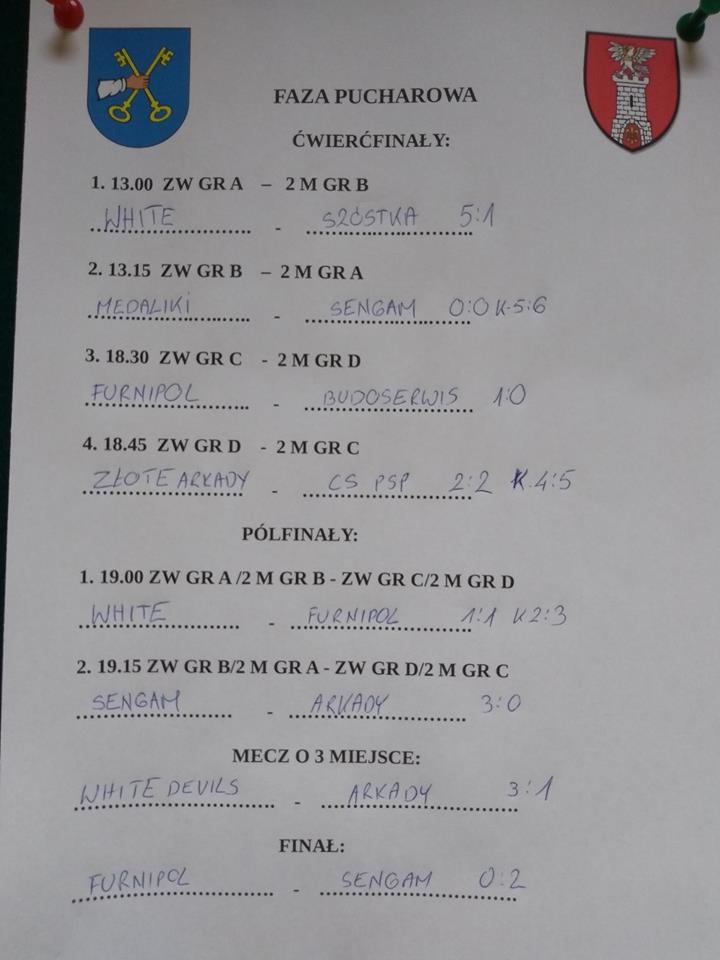 FAZA PUCHAROWA
ĆWIERĆFINAŁY:
1. 13.00 ZW GR A – 2 M GR B
WHITE - SZÓSTKA 5:1
2. 13.15 ZW GR B – 2 M GR A
MEDALIKI - SENGAM 0:0 K-5:6
3. 18.30 ZW GR C - 2 M GR D
FURNIPOL - BUDOSERWIS 1:0
4. 18.45 ZW GR D - 2 M GR C
ZŁOTE ARKADY - CS PSP 2:2 K.4:5
PÓLFINAŁY:
1. 19.00 ZW GR A /2 M GR B - ZW GR C/2 M GR D
WHITE - FURNIPOL 1:1 K2:3
2. 19.15 ZW GR B/2 M GR A - ZW GR D/2 M GR C
SENGAM - ARKADY 3:0
MECZ O 3 MIEJSCE:
WHITE DEVILS - ARKADY 3:1
FINAŁ:
FURNIPOL - SENGAM 0:2